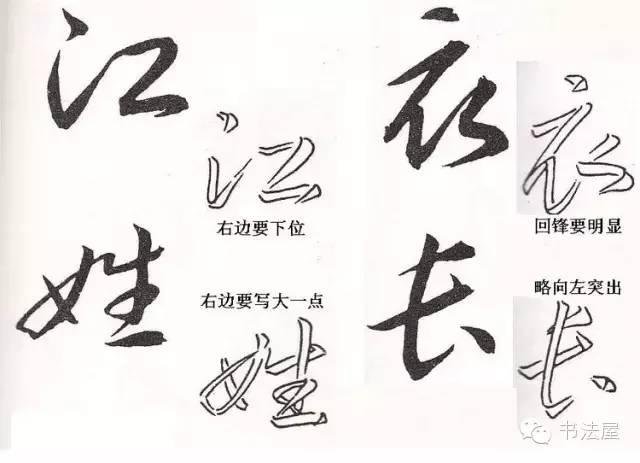 江
右边要下位
姓
右边要写大一点
衣
回锋要明显
长
略向左突出
书法屋